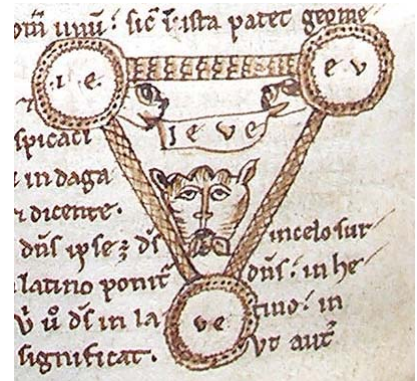 unu᷑: sic̄ i᷑ ista patet geome
ie. ev
ieve
spicaci
in daga
dicente.
dn̄s ip̄se
incelo sur
latino ponit᷑
dn̄s: in he
ve
in la
tino: in
significat.
ut aut᷑